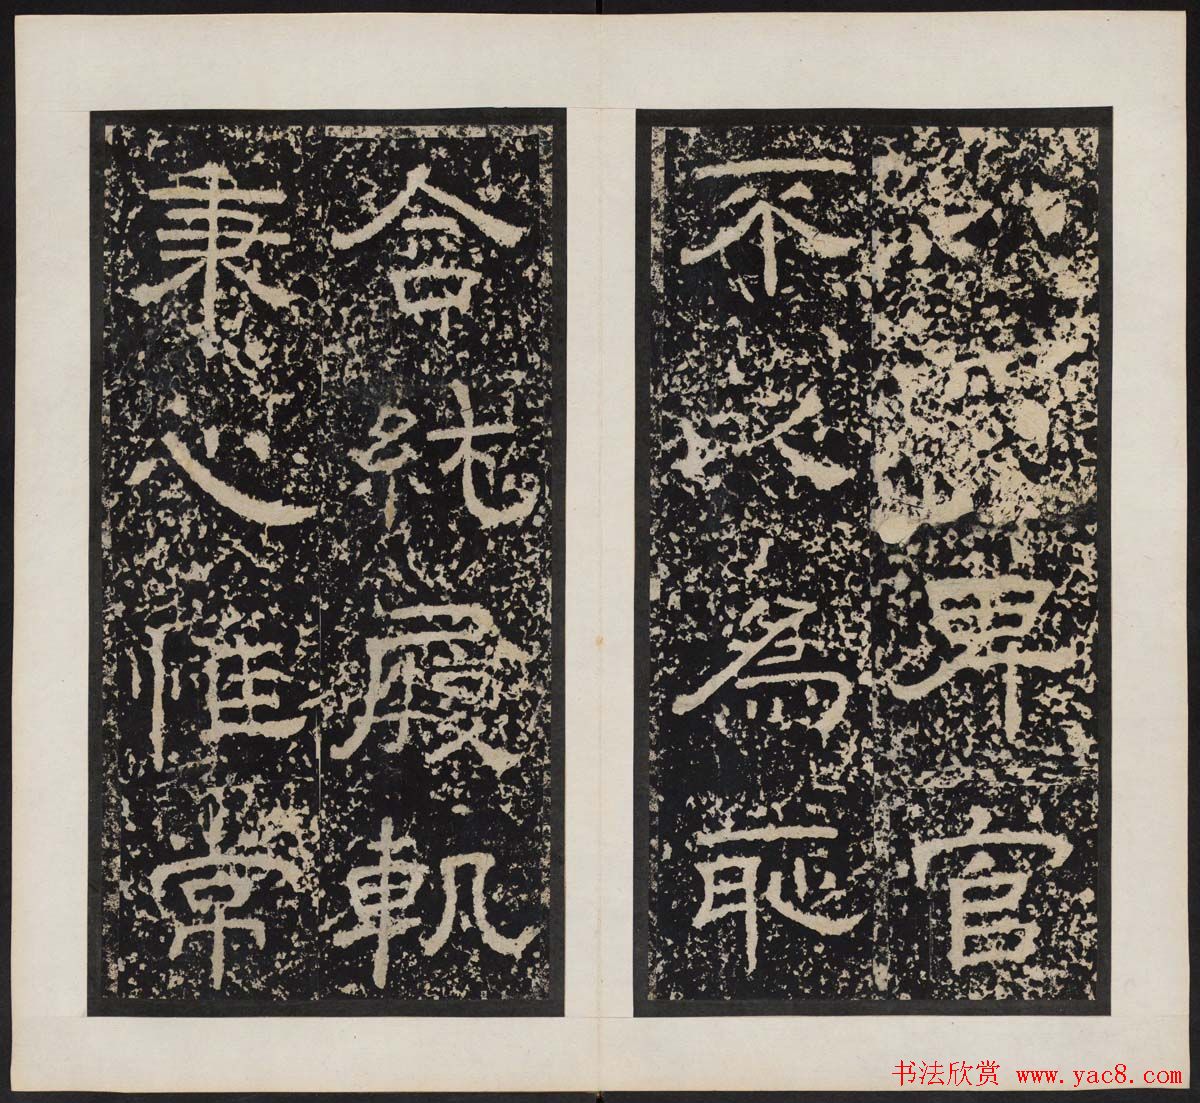 卑官
不以為恥
含純履軌
秉心惟常
书法欣赏 www.yac8.com